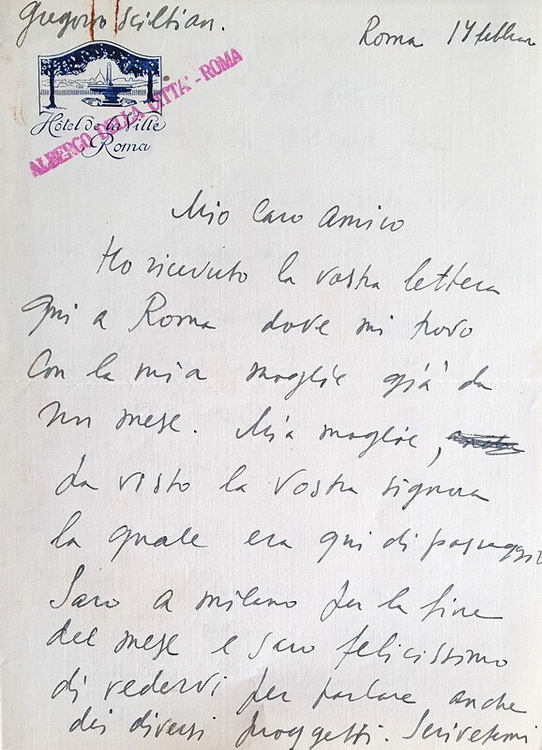 Gregorio Sciltian.
Roma 14 febbrai
Hôtel de la Ville
Roma
ALBERGO DELLA CITTA' - ROMA
Mio Caro Amico
Ho ricevuto la vostra lettera
qui a Roma dove mi trovo
Con la mia moglie già da
un mese. Mia moglie,
da visto la Vostra signora
la quale era qui di passaggio
Saro a milano per la fine
del mese e saro felicissimo
di vedervi per parlare anche
dei diversi proggetti. Scrivetemi